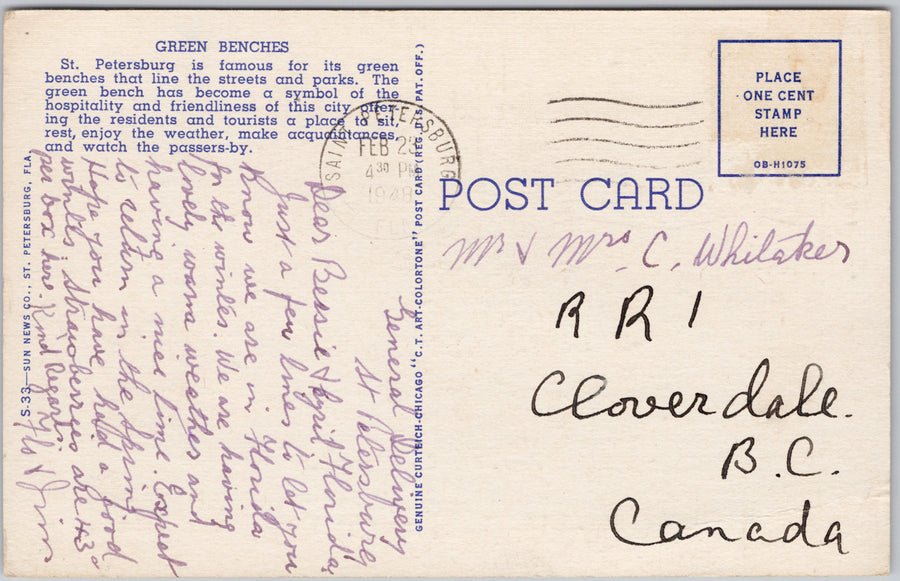 GREEN BENCHES
St. Petersburg is famous for its green
benches that line the streets and parks. The
green bench has become a symbol of the
hospitality and friendliness of this city offer-
ing the residents and tourists a place to sit,
rest, enjoy the weather, make acquaintances,
and watch the passers-by.
S-33—SUN NEWS CO., ST. PETERSBURG, FLA.
General Delivery
St Petersburg
Florida
Dear Bessie & Cyril
Just a few lines to let you
know we are in Florida
for the winter. We are having
lovely warm weather and
having a nice time. Expect
to return in the Spring
Hope you have had a good
winter. Strawberries are 43¢
per box here. Kind Regards.
Flo & Jim
GENUINE CURTEICH-CHICAGO "C.T. ART-COLORTONE" POST CARD (REG. U.S. PAT. OFF.)
SAINT PETERSBURG
FEB 25
4 30 PM
POST CARD
PLACE
ONE CENT
STAMP
HERE
OB-H1075
Mr & Mrs. C. Whitaker
R R 1
Cloverdale.
B.C.
Canada